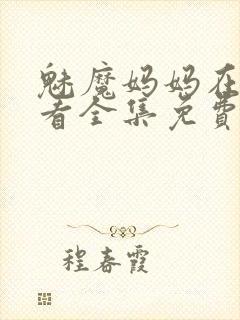 魅魔妈妈在
看全集免费
程春霞